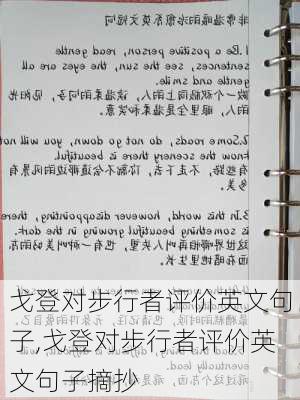 非常温暖的治愈系英文短句
1.Be a positive person, read gentle
sentences, see the sun, the eyes are all
gentle and smile.
做一个积极向上的人，读温柔的句子，见阳光
的人，眼里全是温柔和笑意。
2.Some roads, do not go down, you will not
know the scenery there is beautiful.
有些路，不走下去，你就不会知道那边的风景有
多美。
3.In this world, however disappointing, there
is something beautiful growing in the dark.
这世界哪怕再叫人失望，也有一种叫美好的东
西在暗地里生长。
戈登对步行者评价英文句
子,戈登对步行者评价英
文句子摘抄